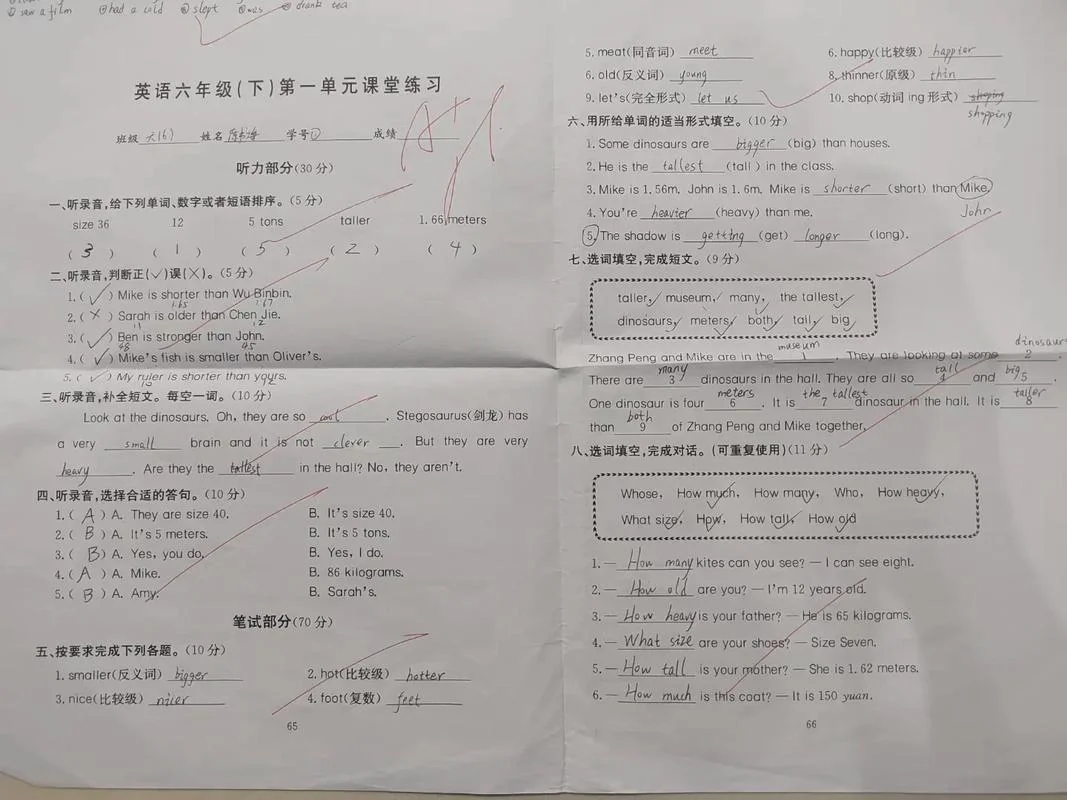 ②saw a film ③had a cold ④slept ⑤was ⑥drank tea
英语六年级(下)第一单元课堂练习
班级 六(6) 姓名 学号 ① 成绩 A+
听力部分(30分)
一、听录音,给下列单词、数字或者短语排序。(5分)
size 36 12 5 tons taller 1.66 meters
( 3 ) ( 1 ) ( 5 ) ( 2 ) ( 4 )
二、听录音,判断正(√)误(×)。(5分)
1.( √ ) Mike is shorter than Wu Binbin.
1.65 1.67
2.( × ) Sarah is older than Chen Jie.
11 12
3.( √ ) Ben is stronger than John.
48 45
4.( √ ) Mike's fish is smaller than Oliver's.
5.( √ ) My ruler is shorter than yours.
三、听录音,补全短文。每空一词。(10分)
Look at the dinosaurs. Oh, they are so cool . Stegosaurus(剑龙) has
a very small brain and it is not clever . But they are very
heavy . Are they the tallest in the hall? No, they aren't.
四、听录音,选择合适的答句。(10分)
1.( A ) A. They are size 40. B. It's size 40.
2.( B ) A. It's 5 meters. B. It's 5 tons.
3.( B ) A. Yes, you do. B. Yes, I do.
4.( A ) A. Mike. B. 86 kilograms.
5.( B ) A. Amy. B. Sarah's.
笔试部分(70分)
五、按要求完成下列各题。(10分)
1. smaller(反义词) bigger 2. hot(比较级) hotter
3. nice(比较级) nicer 4. foot(复数) feet
65
5. meat(同音词) meet 6. happy(比较级) happier
6. old(反义词) young 8. thinner(原级) thin
9. let's(完全形式) let us 10. shop(动词ing形式) shoping
shopping
六、用所给单词的适当形式填空。(10分)
1. Some dinosaurs are bigger (big) than houses.
2. He is the tallest (tall) in the class.
3. Mike is 1.56m, John is 1.6m, Mike is shorter (short) than Mike.
John
4. You're heavier (heavy) than me.
5. The shadow is getting (get) longer (long).
七、选词填空,完成短文。(9分)
taller, museum, many, the tallest,
dinosaurs, meters, both, tall, big
museum dinosaur
Zhang Peng and Mike are in the 1 . They are looking at some 2 .
many tall big
There are 3 dinosaurs in the hall. They are all so 4 and 5 .
meters the tallest taller
One dinosaur is four 6 . It is 7 dinosaur in the hall. It is 8
both
than 9 of Zhang Peng and Mike together.
八、选词填空,完成对话。(可重复使用)(11分)
Whose, How much, How many, Who, How heavy,
What size, How, How tall, How old
1. — How many kites can you see? — I can see eight.
2. — How old are you? — I'm 12 years old.
3. — How heavy is your father? — He is 65 kilograms.
4. — What size are your shoes? — Size Seven.
5. — How tall is your mother? — She is 1.62 meters.
6. — How much is this coat? — It is 150 yuan.
66